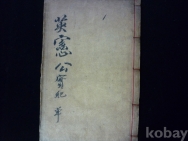 英憲公實記 單
kobay